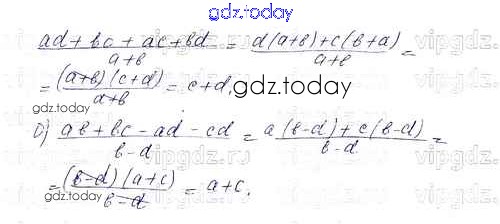 gdz.today
(ad + bc + ac + bd)/(a+b) = (d(a+b)+c(b+a))/(a+b) =
= ((a+b)(c+d))/(a+b) = c+d, gdz.today
gdz.today
б) (ab + bc - ad - cd)/(b-d) = (a(b-d)+c(b-d))/(b-d) =
= ((b-d)(a+c))/(b-d) = a+c.
gdz.today